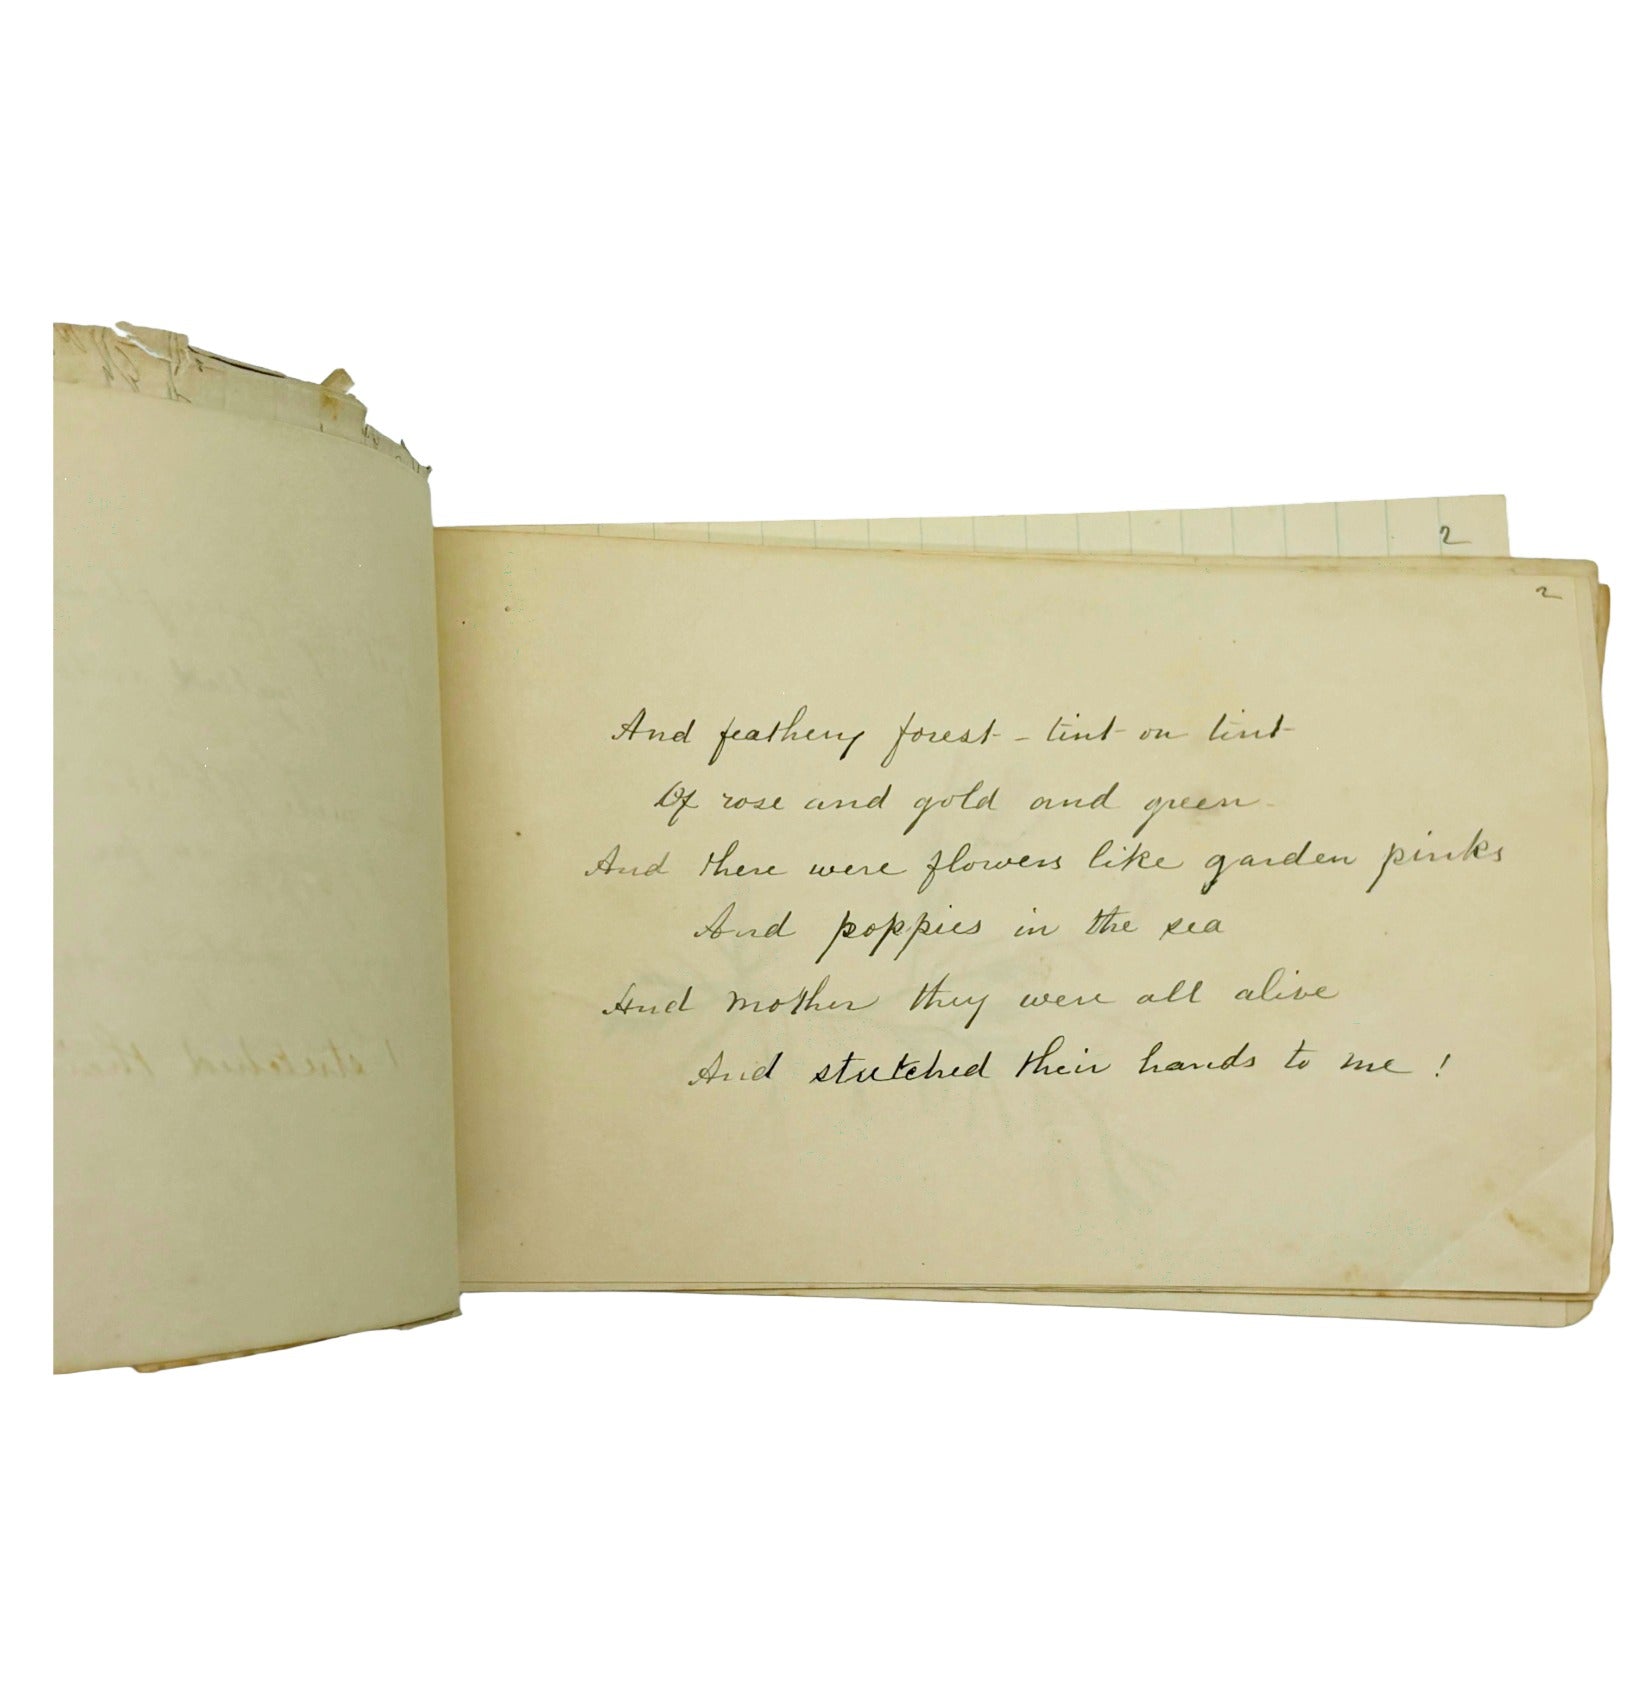 2
2
And feathery forest - tint on tint
Of rose and gold and green -
And there were flowers like garden pinks
And poppies in the sea
And mother they were all alive
And stretched their hands to me !
stretched